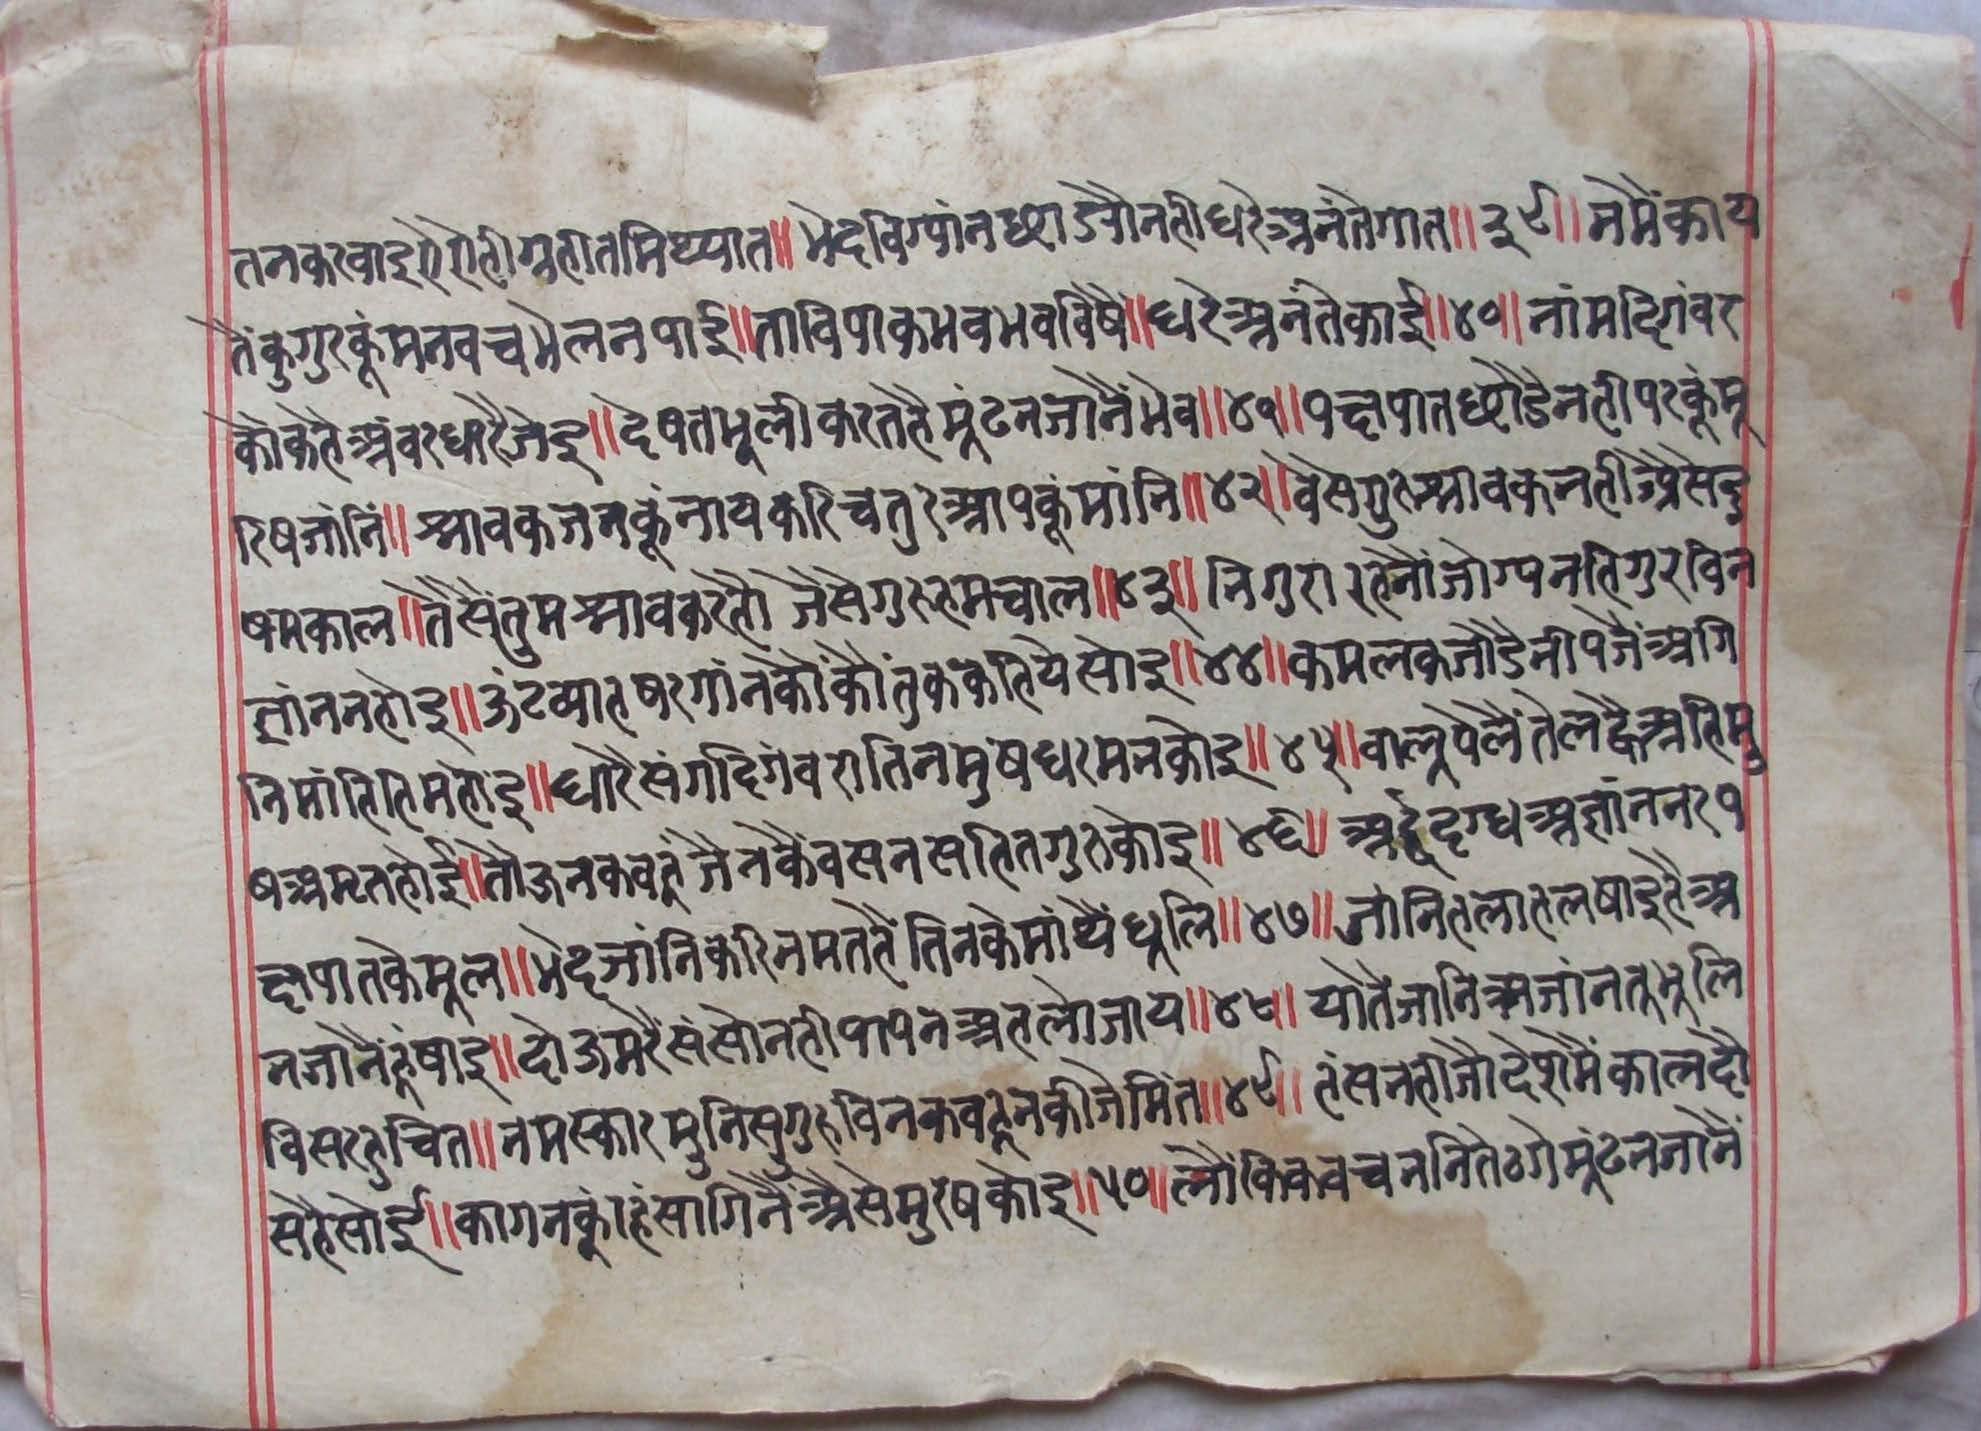 तनकरवाइऐहोहीगृहीतमिथ्यात॥भेदविग्यांनछाड्यौनहीधरेअनंतेगात॥३९॥नमैंकाय
तैंकुगुरकूंमनवचभेलनपाई॥ताविपाकभवभवविषै॥धरेअनंतेकाई॥४०॥नांमदिगंवर
कौकहैअंवरधारैजेइ॥देषतभूलीकरतहैमूंढनजांनैंभेव॥४१॥पक्षपातछौडैनहीपरकूंमू
रिषजांनिं॥श्रावकजनकूंनायकरिचतुरआपकूंमांनि॥४२॥वेसेगुरुश्रावकनहीऔसैदु
षमकाल॥तैसैंतुमश्रावकरहौजैसेगुरुहमचाल॥४३॥निगुरारहनौंजोग्यनहिगुरविन
ज्ञांननहोइ॥ऊंटव्याहषरगांनकौंकौंतुककहियेसोइ॥४४॥कमलकजौडैनीपजैंअगि
निमांहिहिमहोइ॥धारैसंगदिगंवरातिनमुंषधरमनकोइ॥४५॥वालूपेलैंतेलह्वैअहिमु
षअमृतहोई॥तौऊनकवहूंजैनकैंवसनसहितगुरुकोइ॥४६॥अर्द्धदृग्धअज्ञांननरप
क्षपातकेमूल॥भेदजांनिकरिनमतहैंतिनकेमांथैंधूलि॥४७॥जांनिहलाहलषाइहैअ
नजांनैंहूंषाइ॥दोऊमरैंसंसोनहीपापनअहलोजाय॥४८॥यातैजानिअजांनतूभूलि
विसरहुचित॥नमस्कारमुनिसुगुरुविनकवहूनकीजैमिंत॥४९॥हंसनहीजौदेशमैंकालदौ
सहैसोई॥कागनकूंहंसागिनैंऔसेमुरषकोइ॥५०॥लौकिकवचननितेठगेमूंढनजांनैं